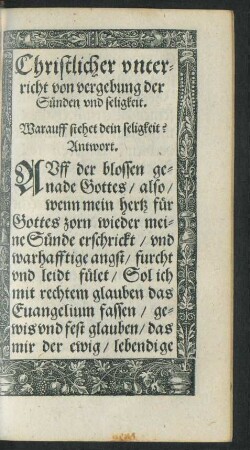 Christlicher vnter-
richt von vergebung der
Sünden vnd seligkeit.
Warauff stehet dein seligkeit?
Antwort.
AVff der blossen ge-
nade Gottes / also /
wenn mein hertz für
Gottes zorn wieder mei-
ne Sünde erschrickt / vnd
warhafftige angst / furcht
vnd leidt fület / Sol ich
mit rechtem glauben das
Euangelium fassen / ge-
wis vnd fest glauben / das
mir der ewig / lebendige